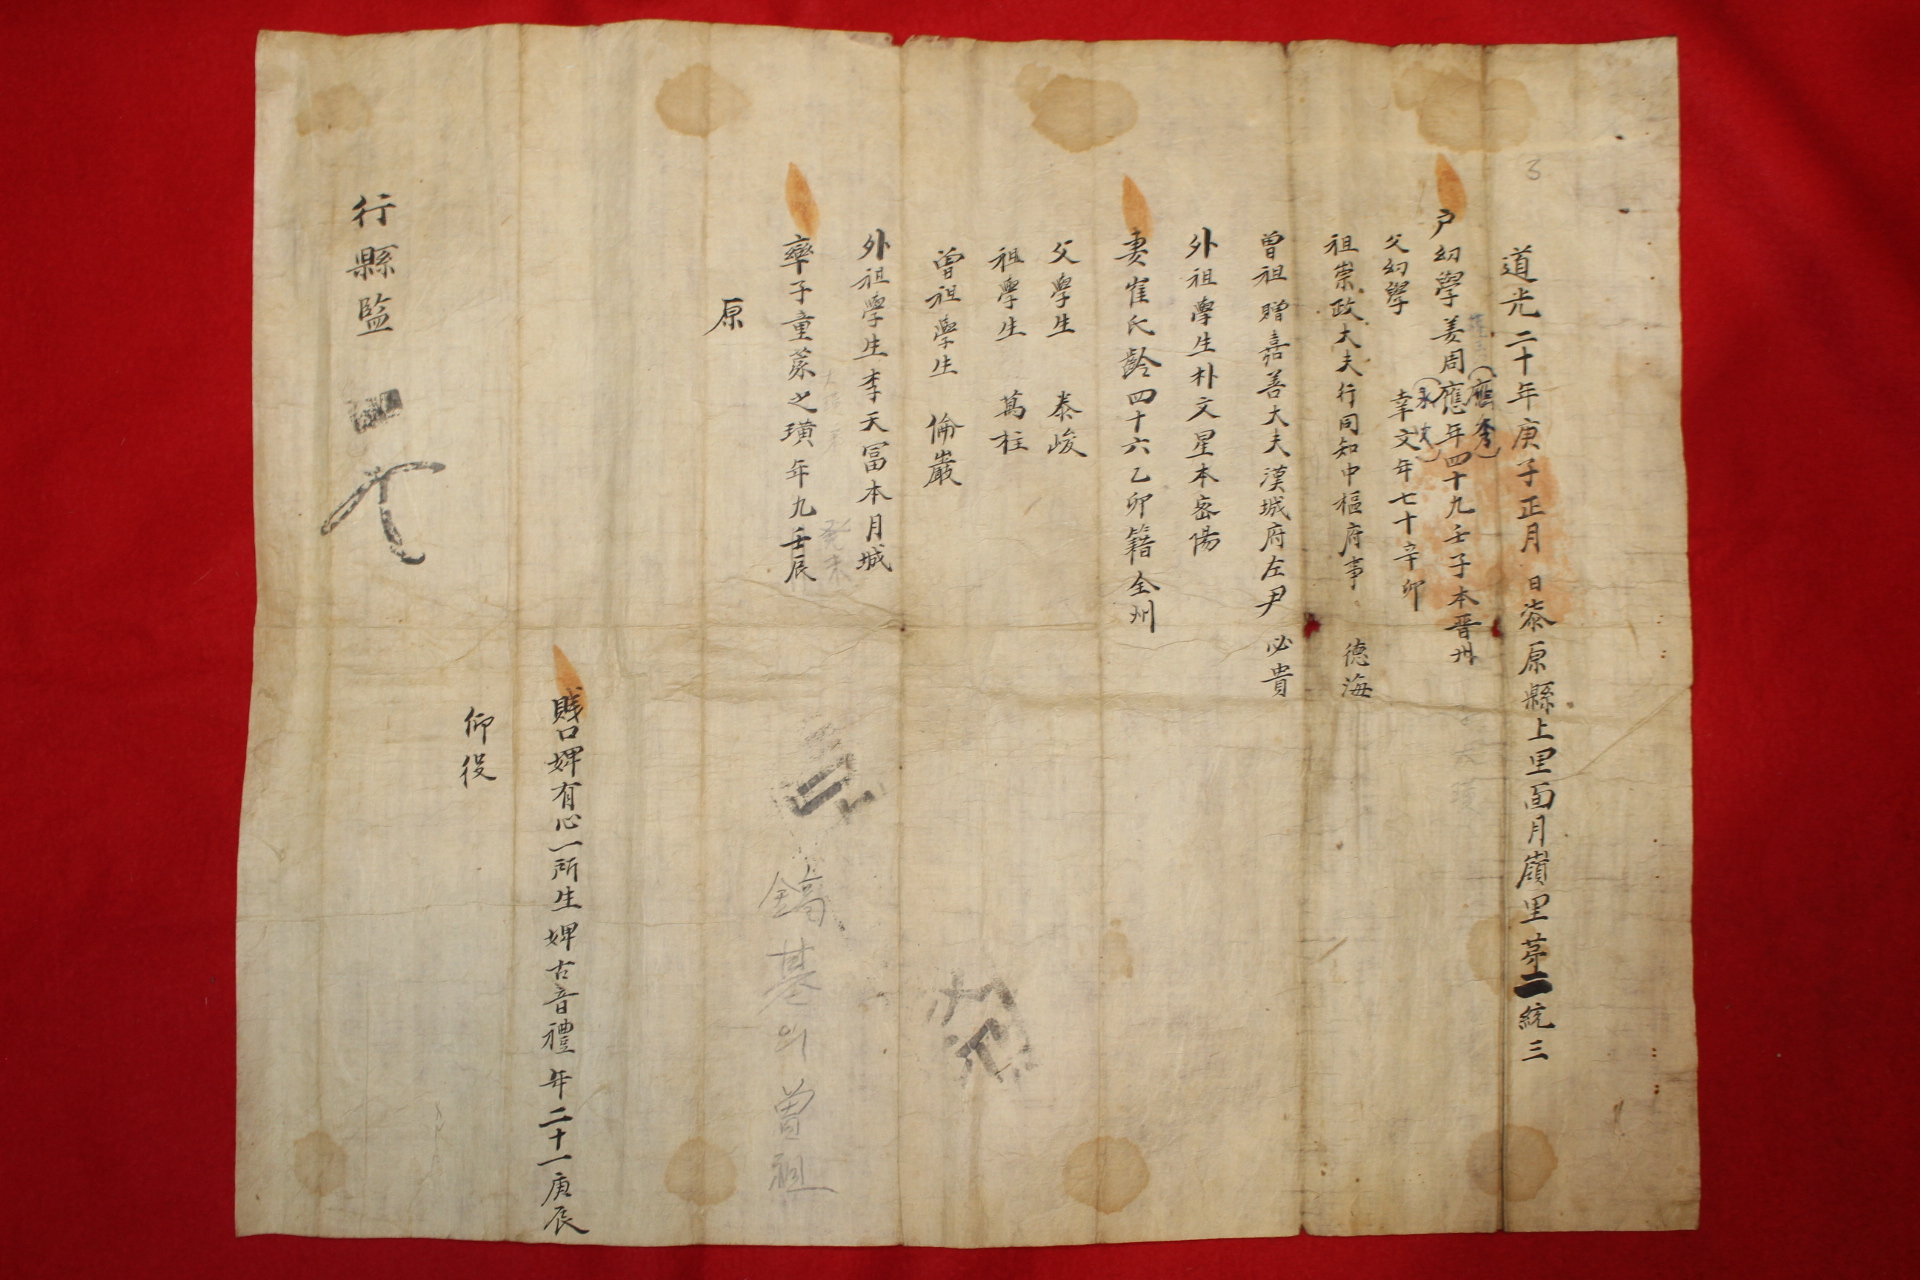 3
道光二十年庚子正月 日漆原縣上里面月嶺里苐二統三
(應秀)
戶幼學姜周應年四十九壬子本晋州
(永文)
父幼學 幸文年七十辛卯
祖崇政大夫行同知中樞府事 德海
曾祖贈嘉善大夫漢城府左尹 必貴
外祖學生朴文星本密陽
妻崔氏齡四十六乙卯籍全州
父學生 泰峻
祖學生 萬柱
曾祖學生 倫巖
外祖學生李天冨本月城
癸未
率子童蒙之璜年九壬辰
鎬基의 曽祖
原
賤口婢有心一所生婢古音禮年二十一庚辰
仰役
行縣監